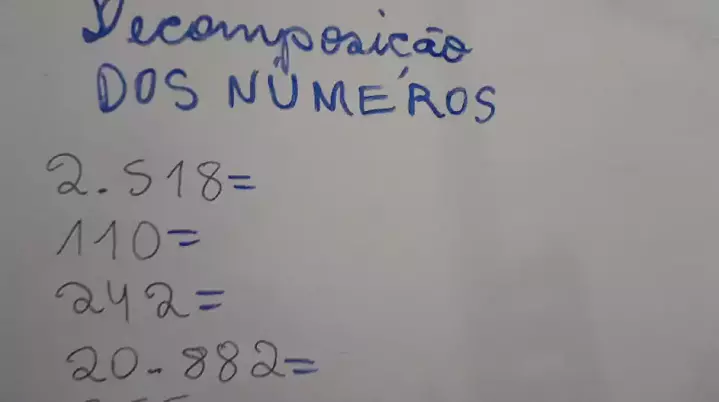 Decomposição
DOS NÚMEROS
2.518=
110=
242=
20.882=